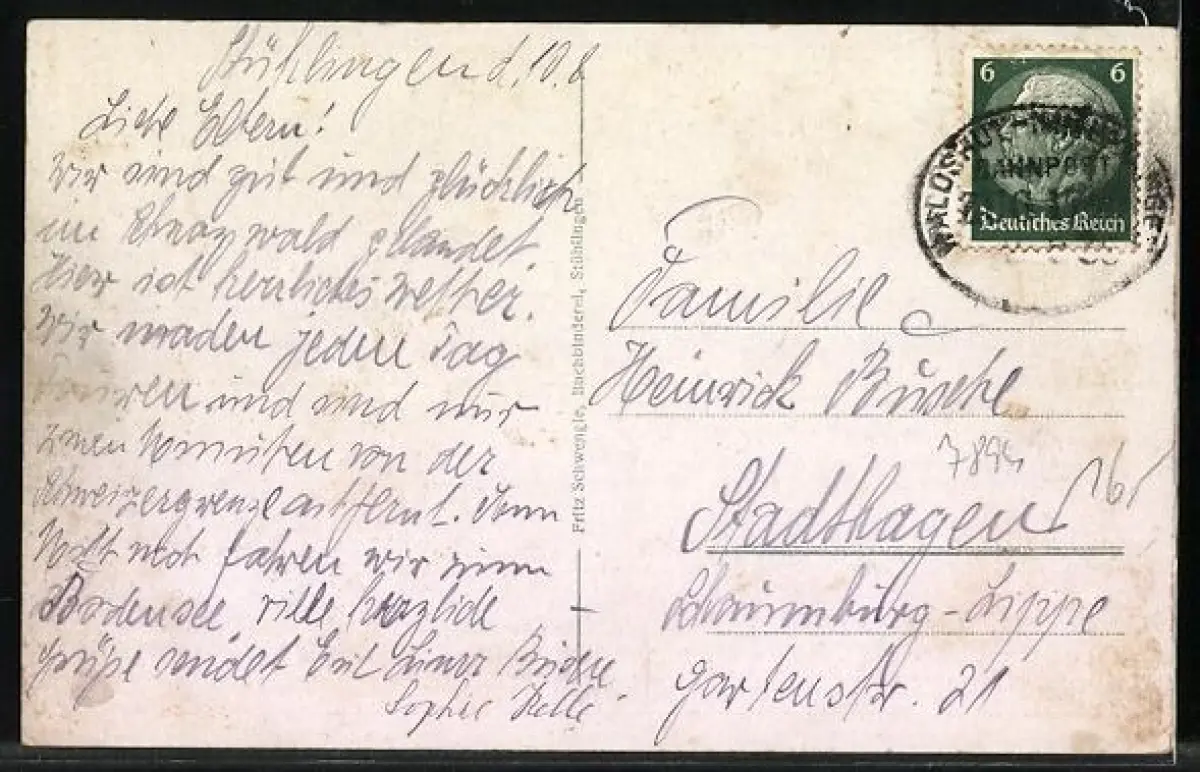 Stühlingen d. 10.8
Liebe Eltern!
Wir sind gut und glücklich
im Schwarzwald gelandet.
Hier ist herrliches Wetter.
Wir machen jeden Tag
Touren und sind nur
zwei Minuten von der
Schweizergrenze entfernt.
fahren wir zum
Bodensee. viele herzliche
Grüße sendet Lina
Sophie
Fritz Schwengle, Buchbinderei, Stühlingen
6 6
WALDSHUT-IMMENDINGEN
BAHNPOST
Deutsches Reich
Familie
Heinrich Busche
7894
Stadthagen
Schaumburg-Lippe
Gartenstr. 21